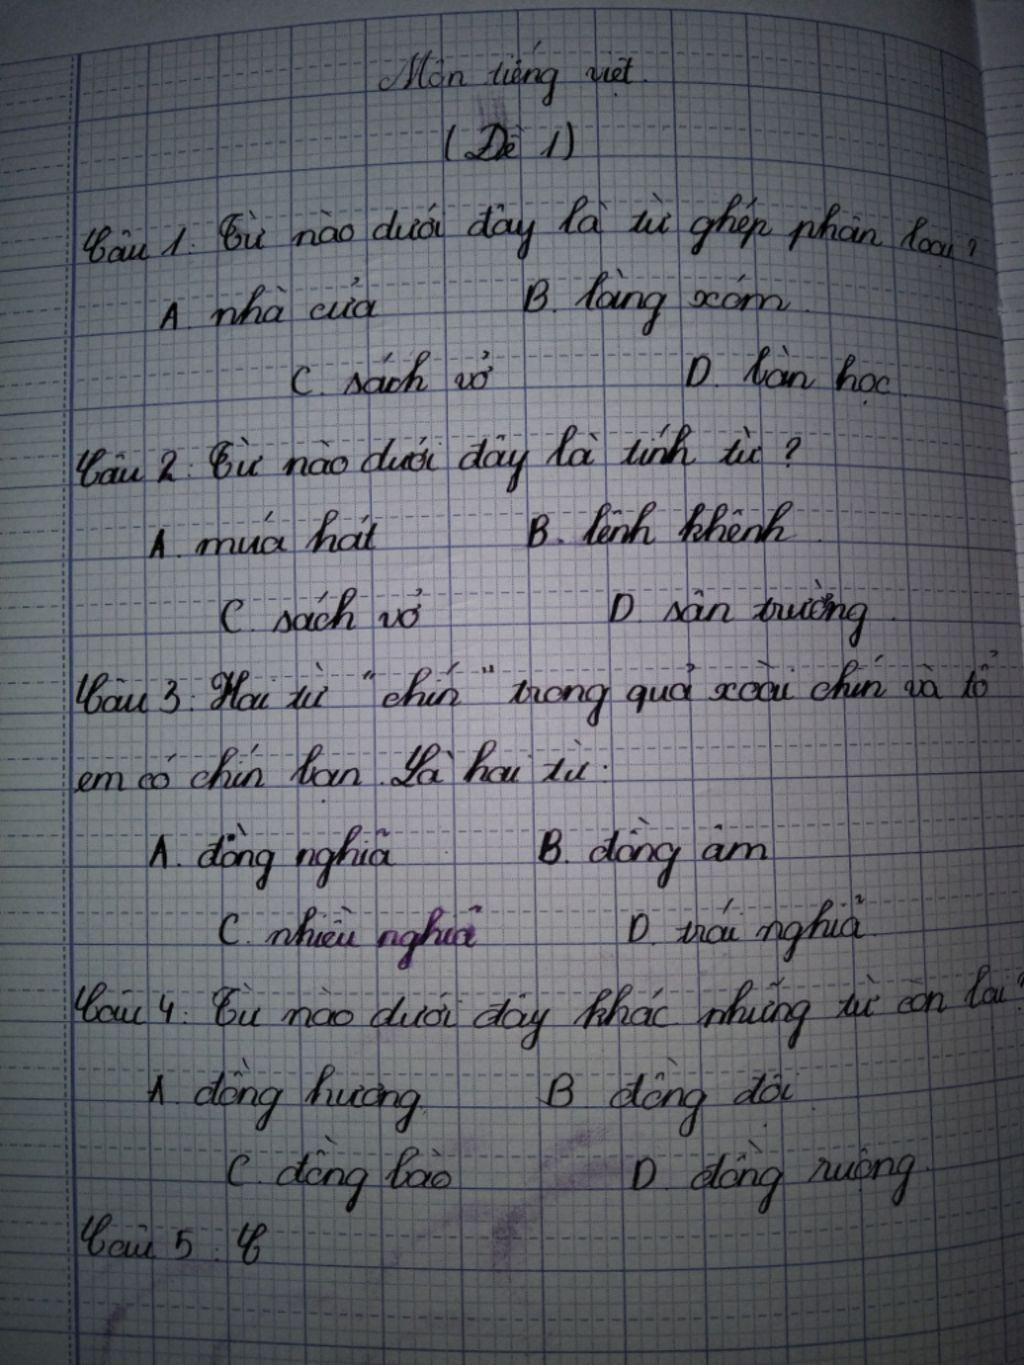 Môn tiếng việt.
(Đề 1)
Câu 1: Từ nào dưới đây là từ ghép phân loại?
A. nhà cửa B. làng xóm.
C. sách vở D. bàn học.
Câu 2: Từ nào dưới đây là tính từ?
A. múa hát B. lênh khênh.
C. sách vở D. sân trường.
Câu 3: Hai từ "chín" trong quả xoài chín và tổ
em có chín bạn. Là hai từ:
A. đồng nghĩa B. đồng âm
C. nhiều nghĩa D. trái nghĩa.
Câu 4: Từ nào dưới đây khác những từ còn lại?
A. đồng hương. B. đồng đội.
C. đồng bào D. đồng ruộng.
Câu 5: C